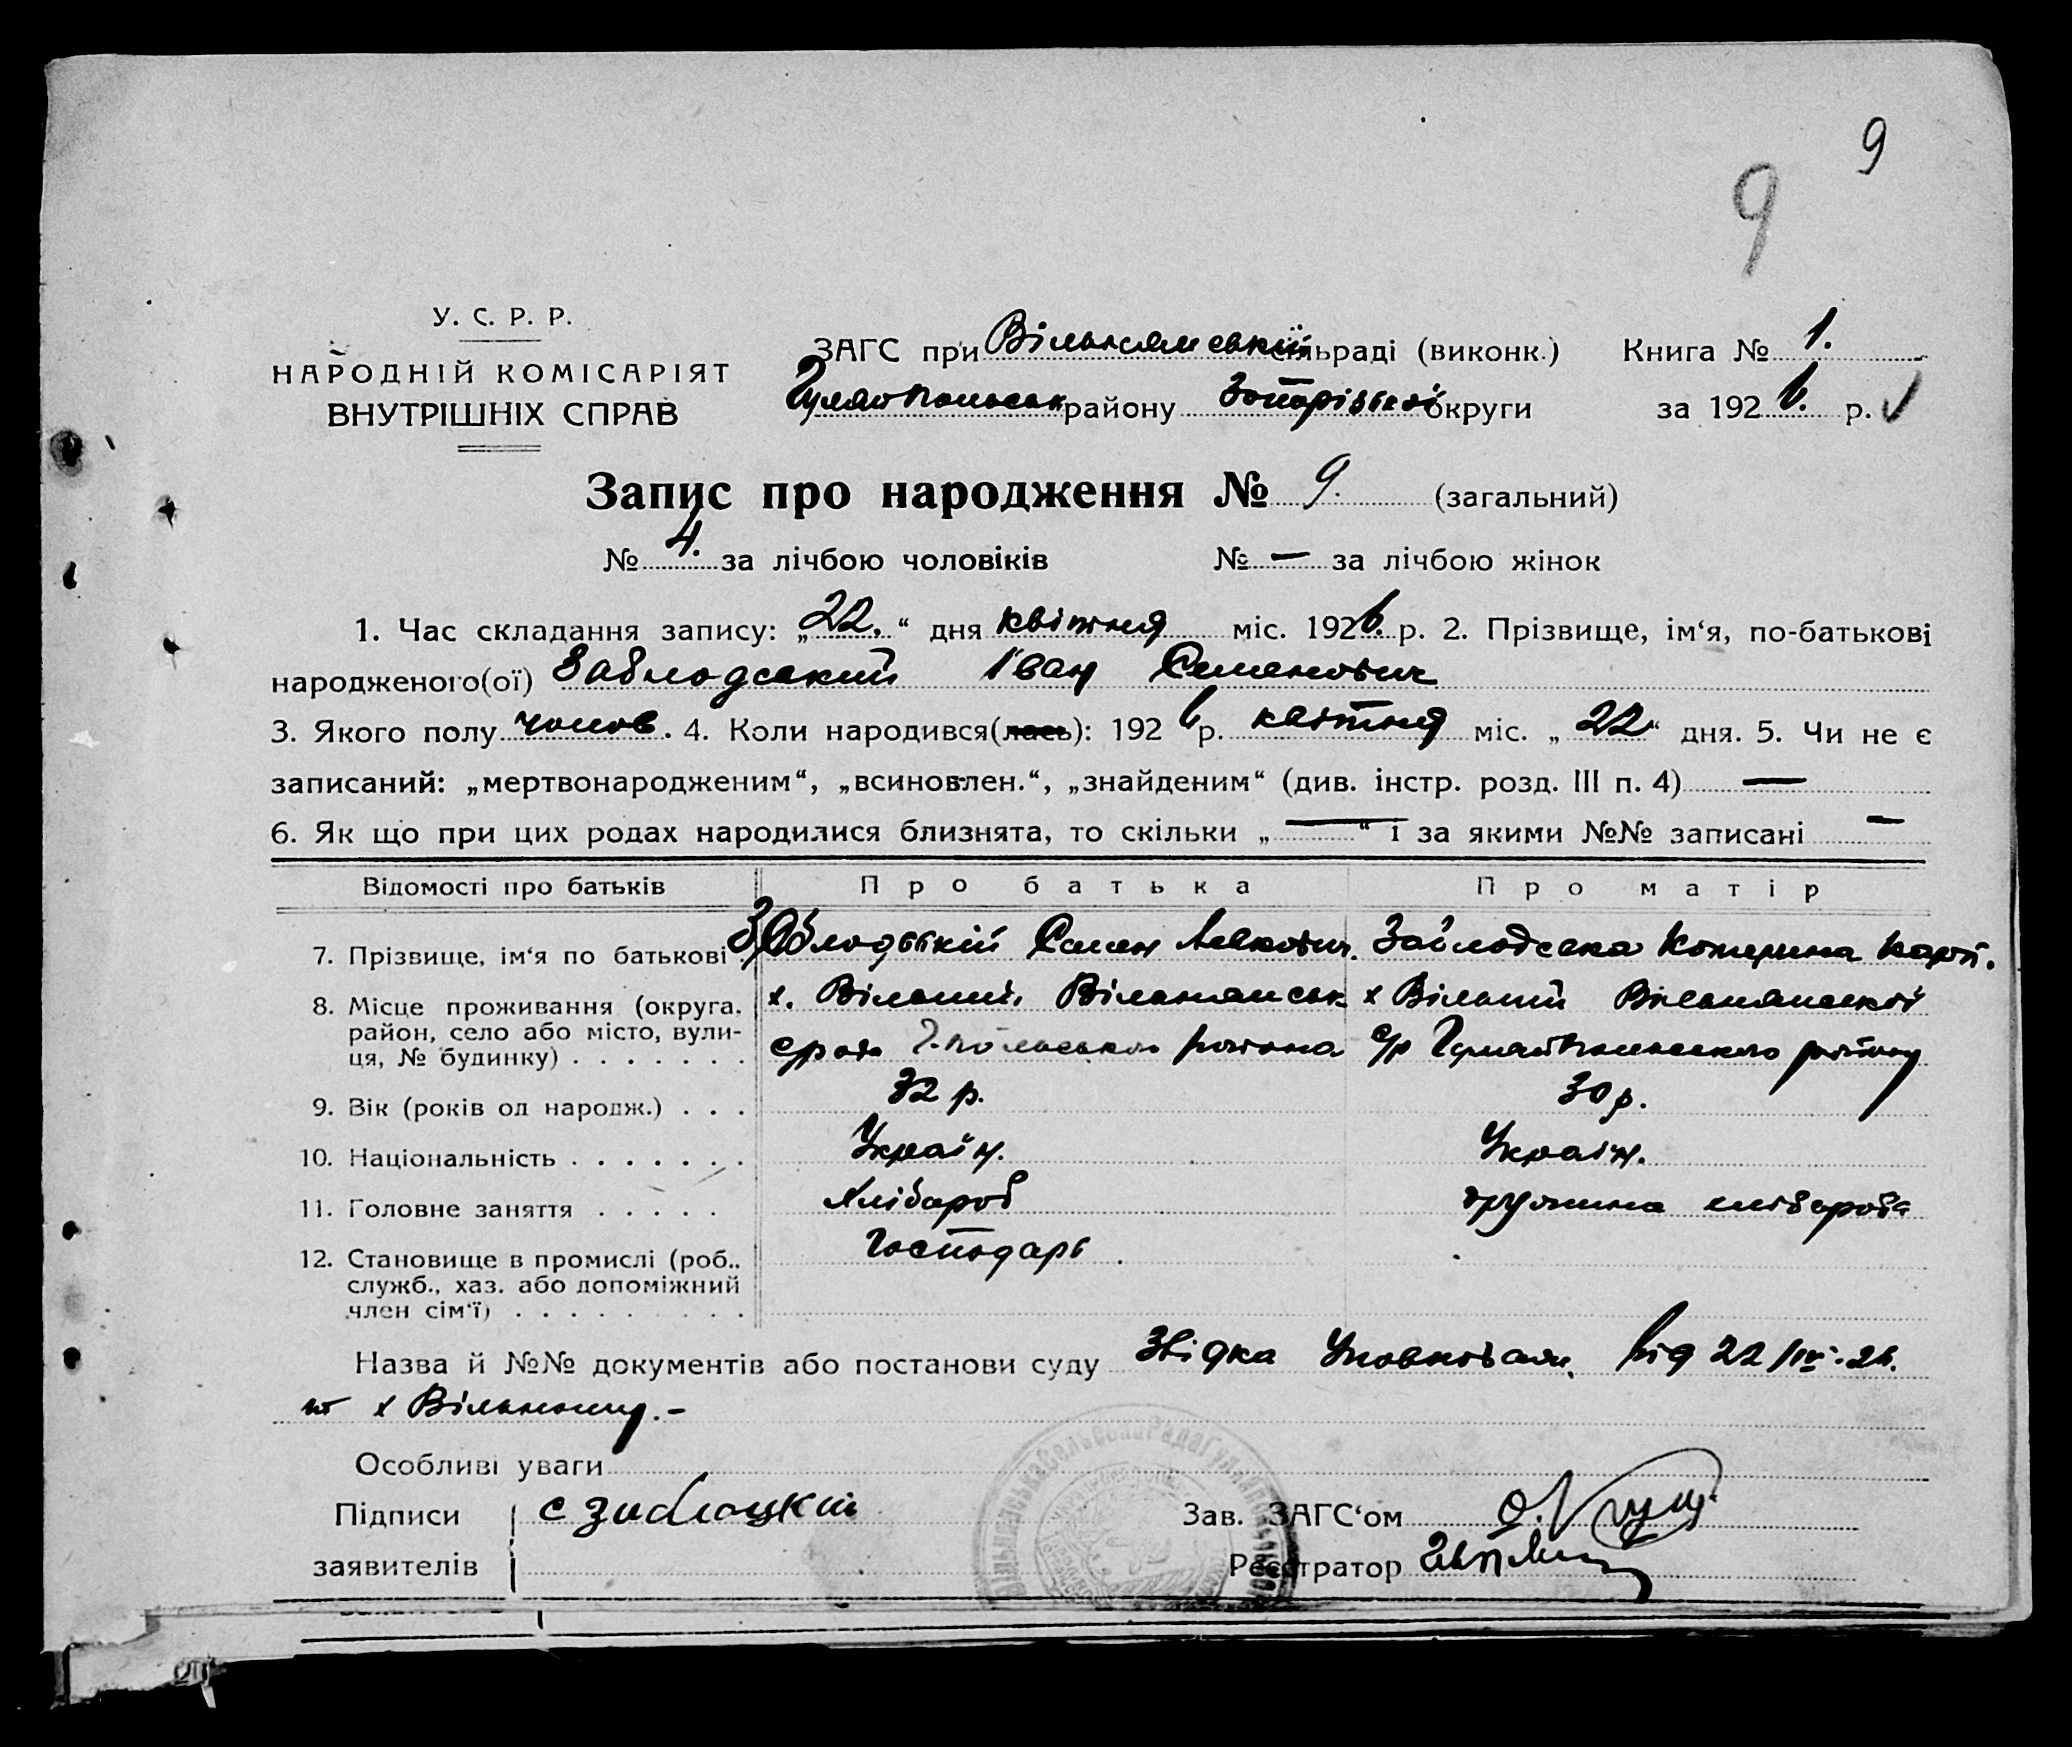 9
9
У. С. Р. Р.
НАРОДНІЙ КОМІСАРІЯТ
ВНУТРІШНІХ СПРАВ
ЗАГС при Вільнянській сільраді (виконк.) Книга № 1.
Гуляйпольськ району Запорізької округи за 1926. р.
Запис про народження № 9. (загальний)
№ 4. за лічбою чоловіків № — за лічбою жінок
1. Час складання запису: „22.“ дня квітня міс. 1926. р. 2. Прізвище, ім‘я, по-батькові
народженого(ої) Заблодський Іван Семенович
3. Якого полу чолов. 4. Коли народився(лась): 1926 р. квітня міс. „22“ дня. 5. Чи не є
записаний: „мертвонародженим“, „всиновлен.“, „знайденим“ (див. інстр. розд. III п. 4) —
6. Як що при цих родах народилися близнята, то скільки „—“ і за якими №№ записані —
Відомості про батьків Про батька Про матір
7. Прізвище, ім‘я по батькові Заблодській Семен Левкович. Заблодська Катерина Карп.
8. Місце проживання (округа, х. Вільний, Вільнянськ х Вільний Вільнянської
район, село або місто, вули-
ця, № будинку) с/р Гуляйпольського району
9. Вік (років од народж.) 32 р. 30 р.
10. Національність Україн. Україн.
11. Головне заняття Хлібороб дружина хлібороба
12. Становище в промислі (роб., Господарь
служб., хаз. або допоміжний
член сім‘ї)
Назва й №№ документів або постанови суду Звідка Уповноваж. від 22/IV-26.
х Вільному.-
Особливі уваги
Підписи С Заблоцкій Зав. ЗАГС‘ом
заявителів Реєстратор